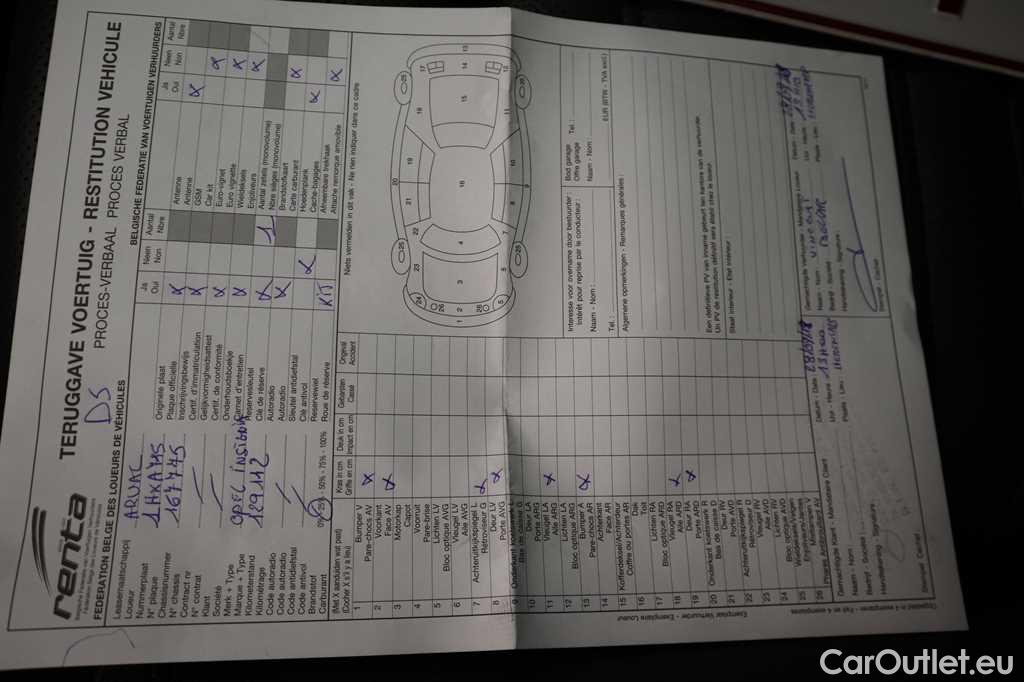 renta
TERUGGAVE VOERTUIG - RESTITUTION VEHICULE
DS
PROCES-VERBAAL PROCES VERBAL
FEDERATION BELGE DES LOUEURS DE VÉHICULES
BELGISCHE FEDERATIE VAN VOERTUIGEN VERHUURDERS
Leasemaatschappij
Loueur
ARVAL
Nummerplaat
N° plaque
1HXA715
Chassisnummer
N° chassis
167445
Contract nr
N° contrat
Klant
Société
Merk + Type
Marque + Type
OPEL INSIGNIA
Kilometerstand
Kilométrage
129112
Code autoradio
Code autoradio
Code antidiefstal
Code antivol
Brandstof
Carburant
0% - 25% - 50% - 75% - 100%
Ja Neen Aantal
Oui Non Nbre
Originele plaat
Plaque officielle
Inschrijvingsbewijs
Certif. d'immatriculation
Gelijkvormigheidsattest
Certif. de conformité
Onderhoudsboekje
Carnet d'entretien
Reservesleutel
Clé de réserve
1
Autoradio
Autoradio
Sleutel antidiefstal
Clé antivol
Reservewiel
Roue de réserve
KIT
Ja Neen Aantal
Oui Non Nbre
Antenne
Antenne
GSM
Car kit
Euro-vignet
Euro vignette
Wieldeksels
Enjoliveurs
Aantal zetels (monovolume)
Nbre sièges (monovolume)
Brandstofkaart
Carte carburant
Hoedenplank
Cache-bagages
Afneembare trekhaak
Attache remorque amovible
(Met X aanduiden wat past)
(Cocher X s'il y a lieu)
Kras in cm
Griffe en cm
Deuk in cm
Impact en cm
Gebarsten
Cassé
Original
Accident
Niets vermelden in dit vak - Ne rien indiquer dans ce cadre
1 Bumper V
Pare-chocs AV
2 Voorkant
Face AV
3 Motorkap
Capot
4 Voorruit
Pare-brise
5 Lichten LV
Bloc optique AVG
6 Vleugel LV
Aile AVG
7 Achteruitkijkspiegel L
Rétroviseur G
8 Deur LV
Porte AVG
9 Onderkant koetswerk L
Bas de caisse G
10 Deur LA
Porte ARG
11 Vleugel LA
Aile ARG
12 Lichten LA
Bloc optique ARG
13 Bumper A
Pare-chocs AR
14 Achterkant
Face AR
15 Kofferdeksel/Achterdeur
Coffre ou portes AR
16 Dak
Toit
17 Lichten RA
Bloc optique ARD
18 Vleugel RA
Aile ARD
19 Deur RA
Porte ARD
20 Onderkant koetswerk R
Bas de caisse D
21 Deur RV
Porte AVD
22 Achteruitkijkspiegel R
Rétroviseur D
23 Vleugel RV
Aile AVD
24 Lichten RV
Bloc optique AVD
25 Wieldeksels/Velgen
Enjoliveurs/Jantes
26 Mistlampen V
Phares Antibrouillard AV
Interesse voor overname door bestuurder
Intérêt pour reprise par le conducteur :
Naam - Nom :
Tel. :
Bod garage
Offre garage
Tel. :
Naam - Nom :
EUR (BTW - TVA excl.)
Algemene opmerkingen - Remarques générales :
Een definitieve PV van inname gebeurt ten name van de verhuurder.
Un PV de restitution définitif sera établi chez le loueur.
Staat interieur - Etat intérieur :
Gemachtigde Klant - Mandataire Client
Naam - Nom :
Bedrijf - Société :
Handtekening - Signature :
Stempel Cachet
Datum - Date : 28/09/18
Uur - Heure : 13H00
Plaats - Lieu :
Gemachtigde Verhuurder - Mandataire Loueur
Naam - Nom : VINCENT
Bedrijf - Société :
Handtekening - Signature :
Stempel - Cachet
Datum - Date
Uur - Heure : 13H10
Plaats - Lieu :
Exemplaar Verhuurder - Exemplaire Loueur
Opgesteld in 4 exemplaren - Fait en 4 exemplaires
CarOutlet.eu